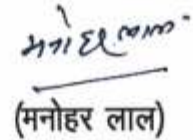 मनोहर लाल
(मनोहर लाल)